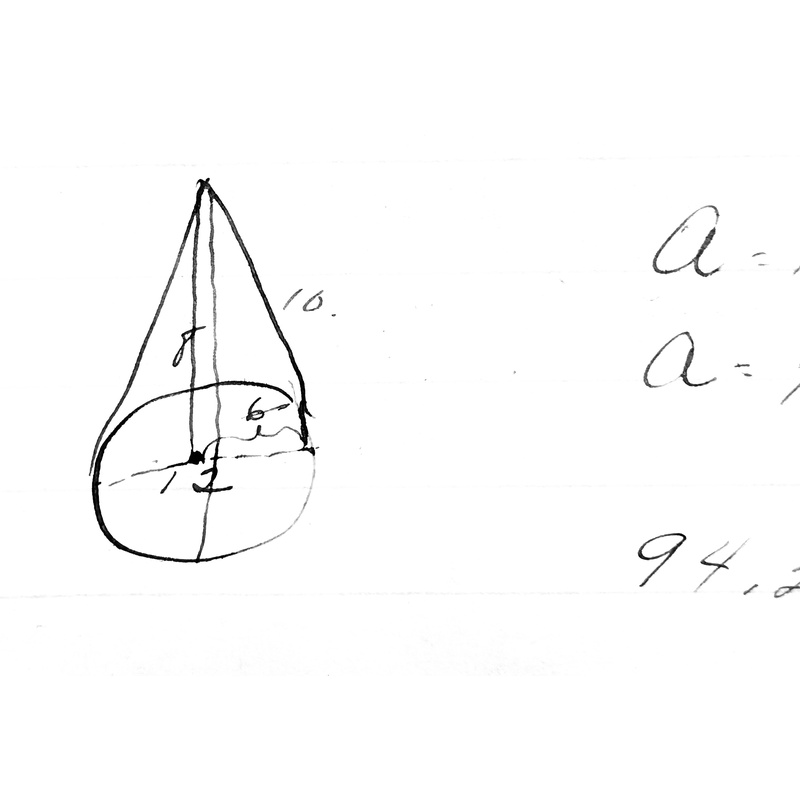 10.
8
6
12
a =
a =
94.2